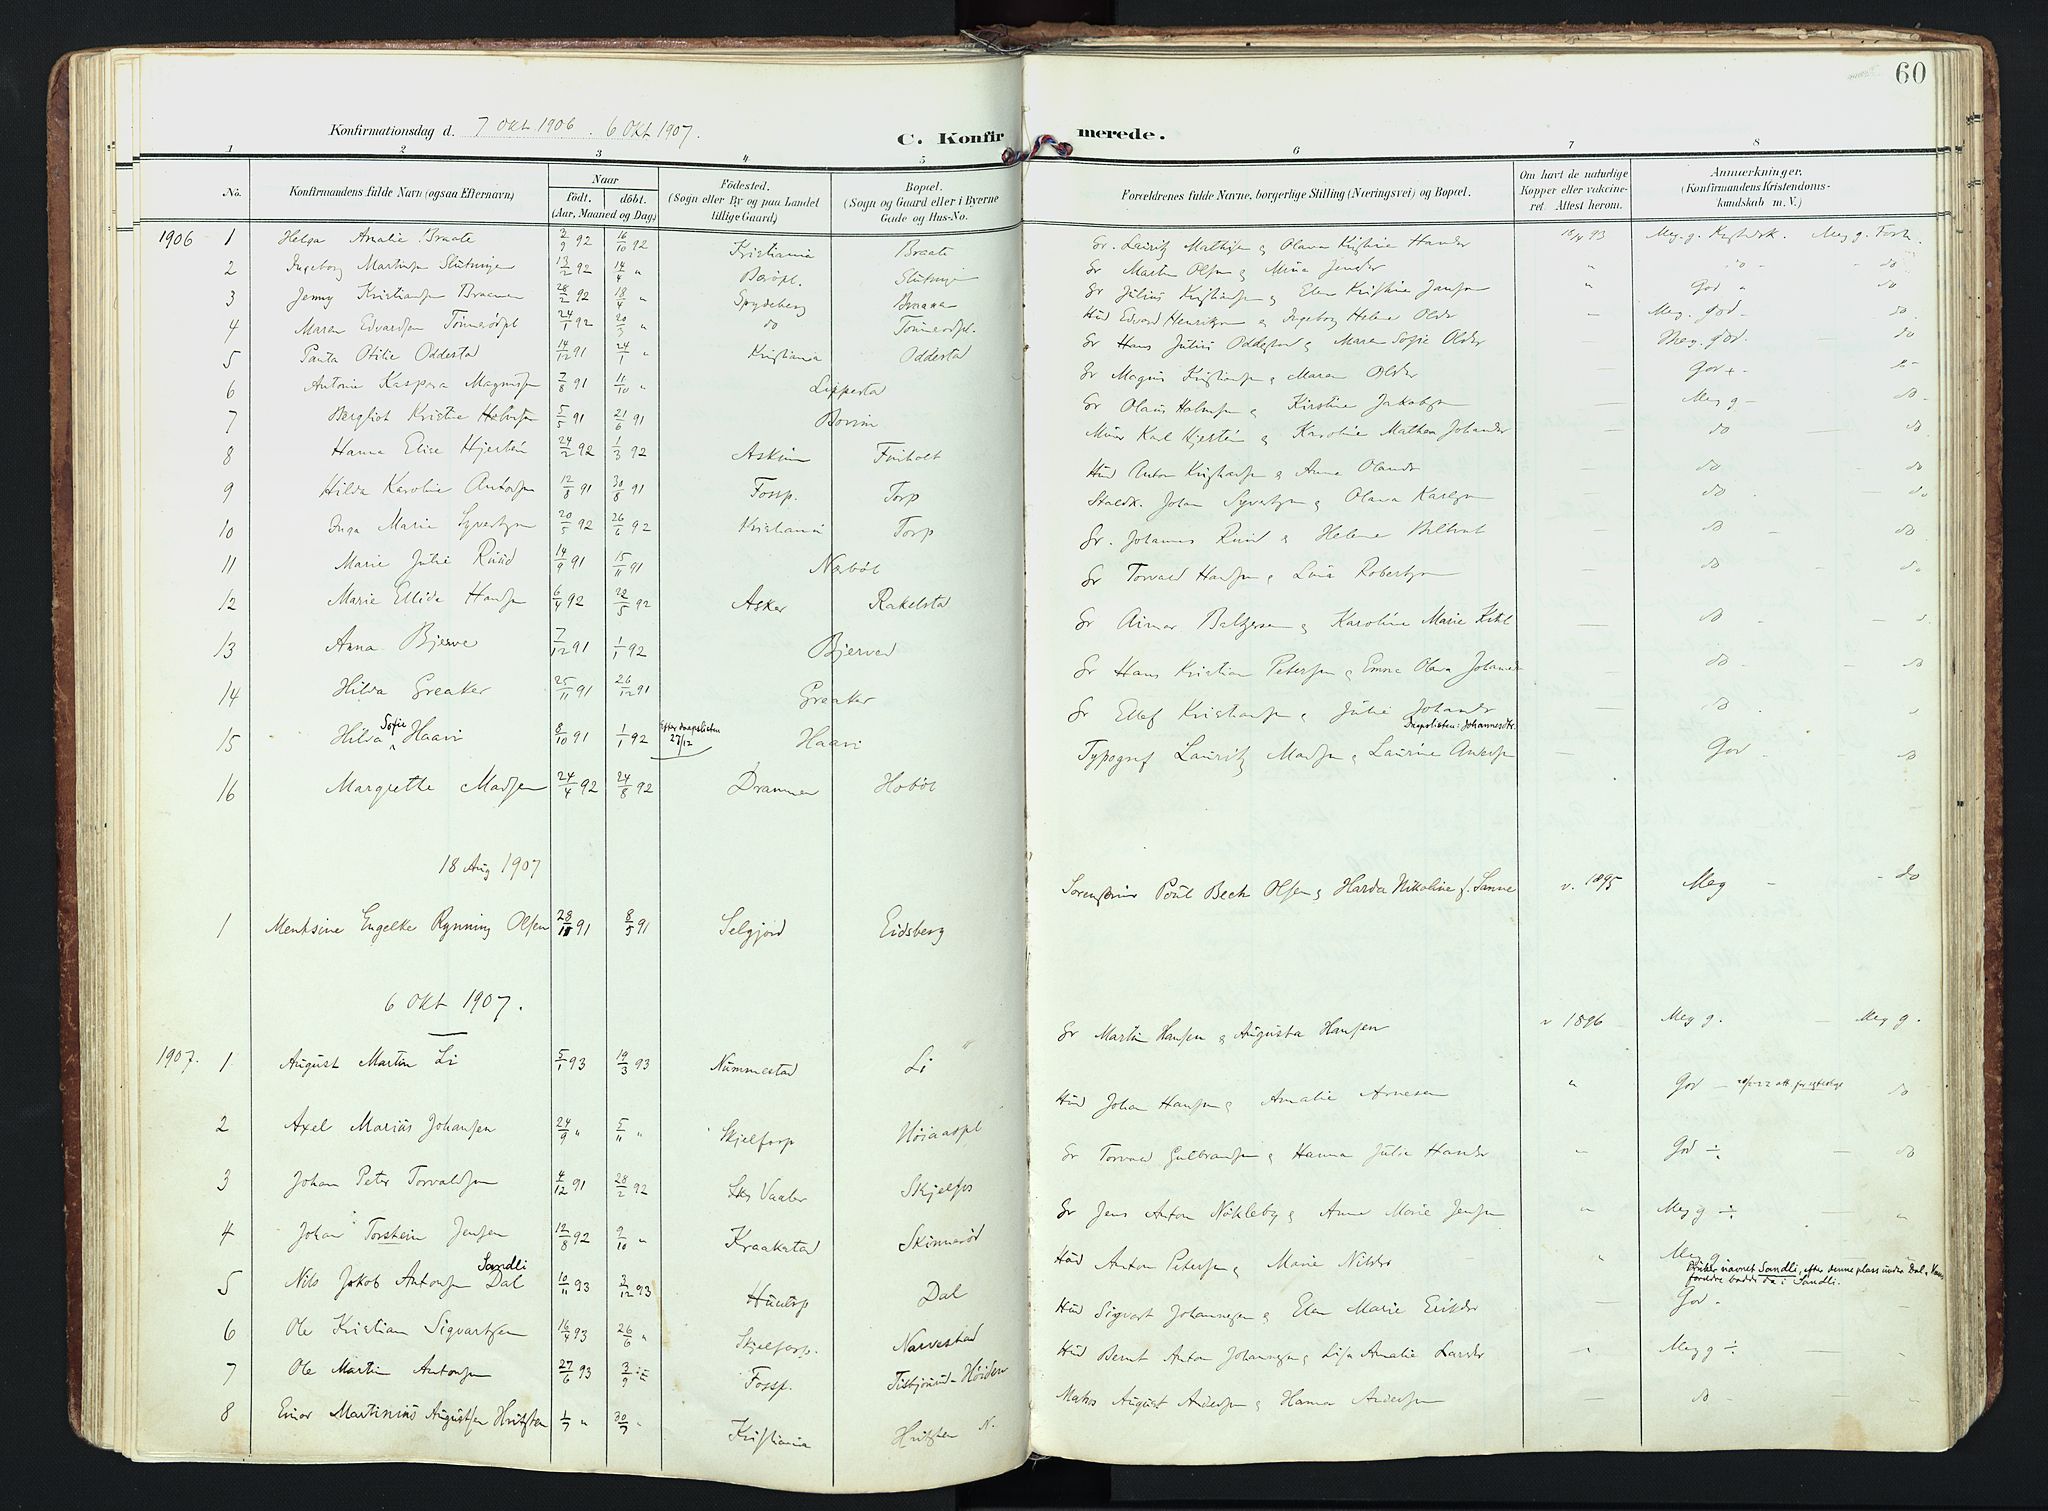 60
Konfirmationsdag d. 7 Okt 1906 . 6 Okt 1907.
C. Konfirmerede.
1 2 3 4 5 6 7 8
No. Konfirmandens fulde Navn (ogsaa Efternavn)
Naar
født. døbt.
(Aar, Maaned og Dag)
Fødested.
(Sogn eller By og paa Landet
tillige Gaard)
Bopæl.
(Sogn og Gaard eller i Byerne
Gade og Hus-No.
Forældrenes fulde Navne, borgerlige Stilling (Næringsvei) og Bopæl.
Om havt de naturlige
Kopper eller vakcine-
ret. Attest herom.
Anmærkninger.
(Konfirmandens Kristendoms-
kundskab m. V.)
1906 1 Helga Amalie Braate 2/9 92 16/10 92 Kristiania Braate Gr. Lauritz Mathisen og Olava Kristine Hansdr
2 Ingeborg Martinsen Slutninge 13/2 92 14/4 " Slutninge Gr Martin Olsen og do
3 Jenny Kristiansen Braanen 28/2 92 18/4 " Spydeberg Braanen Gr Julius Kristiansen og Elen Kristine Jansen God
4 Maren Edvardsen Tonnerødpl 24/1 92 20/3 " do Tonnerødpl. Hud Edvard Henriksen og Ingeborg Helene Olsdr Meg. god do
5 Paula Otilie Oddestad 14/12 91 24/1 " Kristiania Oddestad Gr Hans Julius Oddestad og Maren Sofie Olsdr Meg. god. do
6 Antonie Kaspara Magnussen 7/8 91 11/10 " Lippestad Gr Magnus Kristiansen og Maren Olsdr God +
7 Bergliot Kristine Halvorsen 5/5 91 21/6 91 Bovim Gr Olaus Halvorsen og Kirstine Jakobsen Meg g do
8 Hanna Elise Hjertén 24/2 92 1/3 92 Askim Finholt Murer Karl Hjertén og Karoline Mathea Johansdr do do
9 Hilda Karoline Antonsen 12/8 91 30/8 91 Fossp. Torp Hud Anton Kristiansen og Anna Olausdr do do
10 Inga Marie Syvertsen 20/5 92 26/6 92 Kristiania Torp Staldk. Johan Syvertsen og Olava Karlsen do do
11 Marie Julie Ruud 14/9 91 15/11 91 Næsbøl Gr. Johannes Ruud og Helene do do
12 Marie Ellida Hansen 6/4 92 22/5 92 Asker Rakelstad Gr Torvald Hansen og Lina Robertsen do do
13 Anna Bjerve 7/12 91 1/1 92 Bjerved Gr Aimar Baltzersen og Karoline Marie do
14 Hilda Greaker 25/11 91 26/12 91 Greaker Gr Hans Kristian Petersen og Emma Olava Johansdr do do
15 Hilda Sofie Haavi 8/10 91 1/1 92 Efter daapslisten 27/12 Haavi Gr Ellef Kristiansen og Julie Johansdr Daapslisten: Johannesdtr. do
16 Margrethe Madsen 24/4 92 24/8 92 Drammen Hobøl Typograf Lauritz Madsen og Laurine Andersen God do
18 Aug 1907
1 Mentsine Engelke Rynning Olsen 28/11 91 8/5 91 Selgjord Eidsberg Poul Bech Olsen og Harda Nikoline f. Sanne v. 1895 Meg do
6 Okt 1907.
1907. 1 August Martin Li 5/1 93 19/3 93 Nummestad Li Gr Martin Hansen og Augusta Hansen v 1896 Meg g. Meg g.
2 Axel Marius Johansen 24/9 " 5/11 " Skjelfosp Høiaaspl Hud Johan Hansen og Amalie Arnesen " God do
3 Johan Peter Torvaldsen 4/12 91 28/2 92 Vaaler Skjelfos Gr Torvald Gulbransen og Hanna Julie Hansdr " God ÷ do
4 Johan Torstein Jensen 12/8 92 9/10 " Kraakstad Skinnerød Gr Jens Anton Nøkleby og Anne Marie Jensen " Meg g ÷ "
5 Nils Jakob Antonsen Dal Sandli 10/11 93 3/12 93 Huutsp Dal Hud Anton Petersen og Marie Nilsdr " Meg g
Bruker navnet Sandli, efter denne plass under Dal. Hans
foreldre bodde da i Sandli.
6 Ole Kristian Sigvartsen 16/4 93 26/6 " Skjelfosp. Narvestad Hud Sigvart Johannesen og Elen Marie Eriksdr God
7 Ole Martin Antonsen 27/6 93 3/9 Fossp. Hud Bernt Anton Johannesen og Lisa Amalie Larsdr Meg g ÷
8 Einar Martinius Augustsen Hvitsten 1/7 " 30/7 " Kristiania Hvitsten N. Matros August Andersen og Hanna Andersen do